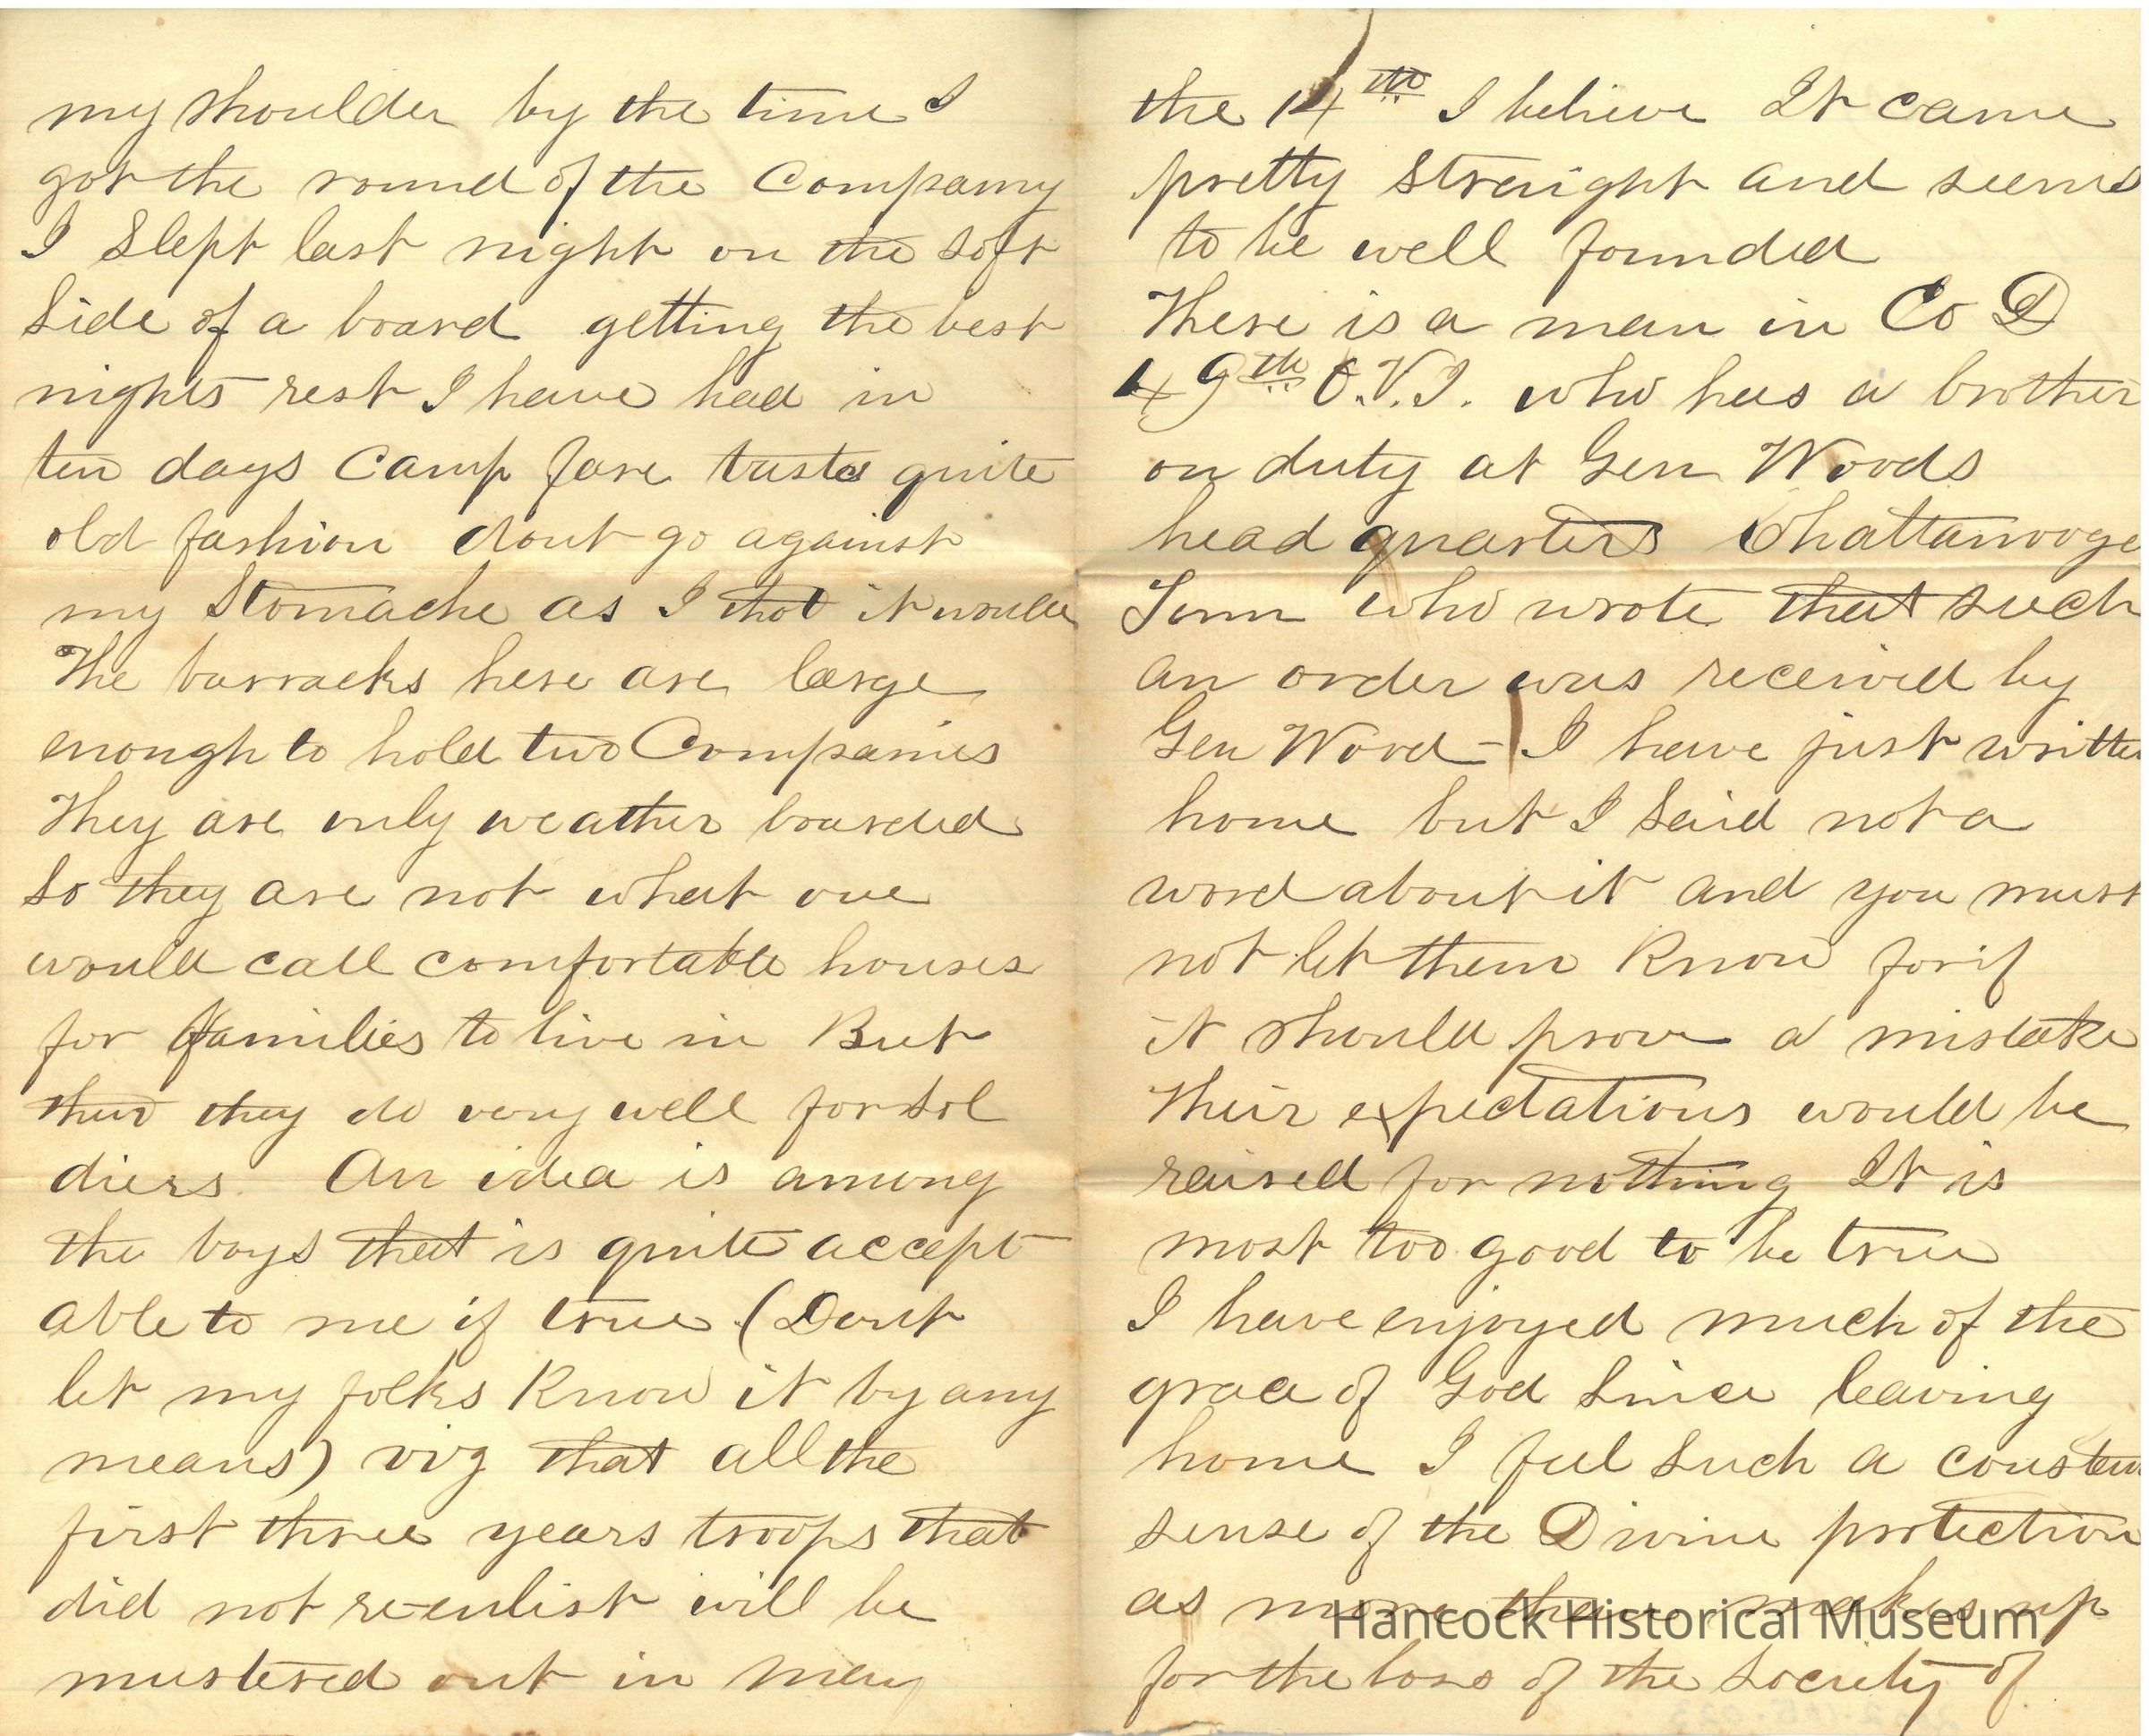 my shoulder by the time I
got the round of the Company
I Slept last night on the soft
Side of a board getting the best
nights rest I have had in
ten days Camp fare tastes quite
old fashion dont go against
my Stomache as I thot it would
The barracks here are large
enough to hold two Companies
They are only weather boarded
So they are not what one
would call comfortable houses
for families to live in But
then they do very well for sol
diers. An idea is among
the boys that is quite accept
able to me if true (Dont
let my folks Know it by any
means) viz that all the
first three years troops that
did not re-enlist will be
mustered out in May
the 14th I believe It came
pretty Straight and seems
to be well founded
There is a man in Co D
49th O.V.I. who has a brother
on duty at Gen Woods
head quarters Chattanooga
Tenn who wrote that such
an order was received by
Gen Wood - I have just written
home but I Said not a
word about it and you must
not let them Know for if
it should prove a mistake
Their expectations would be
raised for nothing It is
most too good to be true
I have enjoyed much of the
grace of God Since leaving
home I feel Such a constan
sense of the Divine protection
as more than makes up
for the loss of the Society of
Hancock Historical Museum